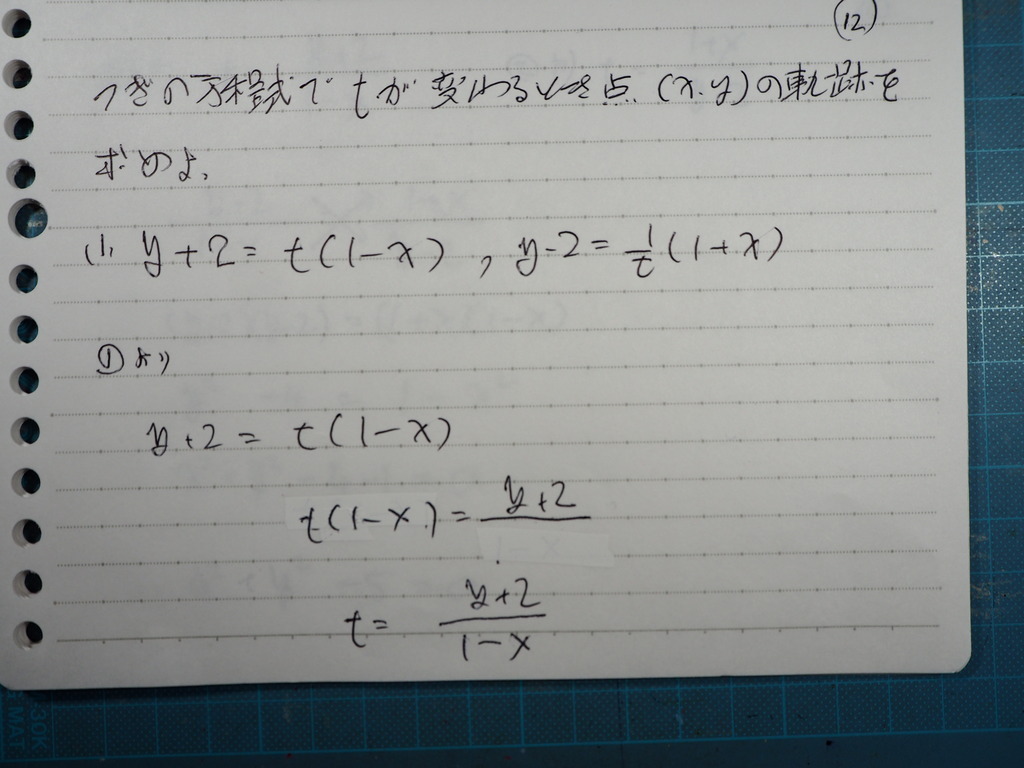 (12)
つぎの方程式で tが 変わるとき点 (x.y)の軌跡を
求めよ。
(1) y+2= t(1-x) , y-2= 1/t (1+x)
①より
y+2= t(1-x)
t(1-x)= y+2
t= y+2/1-x